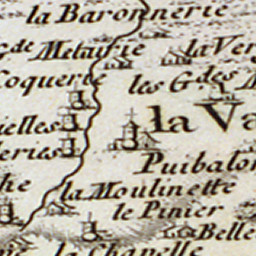 la Baronnerie
G.de Metairie
la Ver
Coquerie
les G.des M
la Va
ielles
leries
Puibalon
he
la Moulinette
le Pinier
Belle
la Chapelle